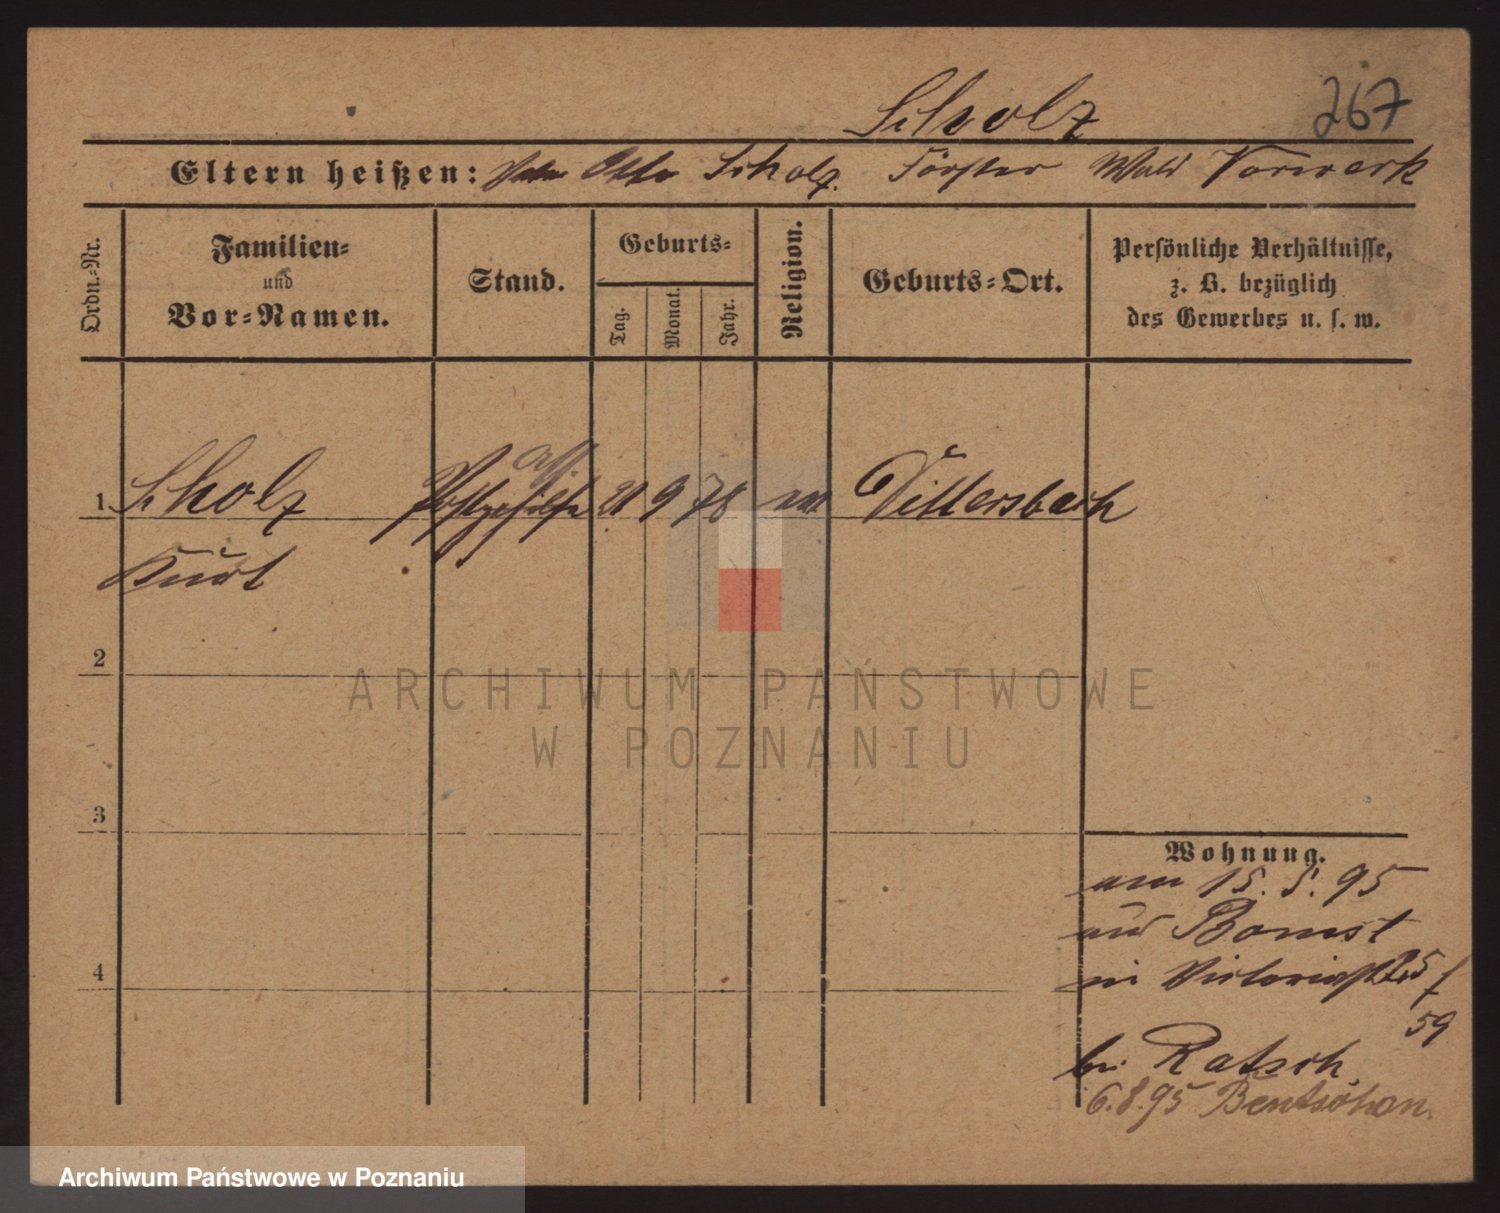 267
Scholz
Eltern heißen: Vater Otto Scholz. Förster Wald Vorwerk
Ordn.=Nr.
Familien=
und
Vor=Namen.
Stand.
Geburts=
Tag.
Monat.
Jahr.
Religion.
Geburts=Ort.
Persönliche Verhältnisse,
z. B. bezüglich
des Gewerbes u. s. w.
1 Scholz Postgehilfe 9 78 Vittersbach
Kurt
2
ARCHIWUM PAŃSTWOWE
W POZNANIU
3
Wohnung.
am 15. 5. 95
aus Bomst
4
in Victoriastr 25
59
bei Ratsch
6.8.95 Bentschen.
Archiwum Państwowe w Poznaniu